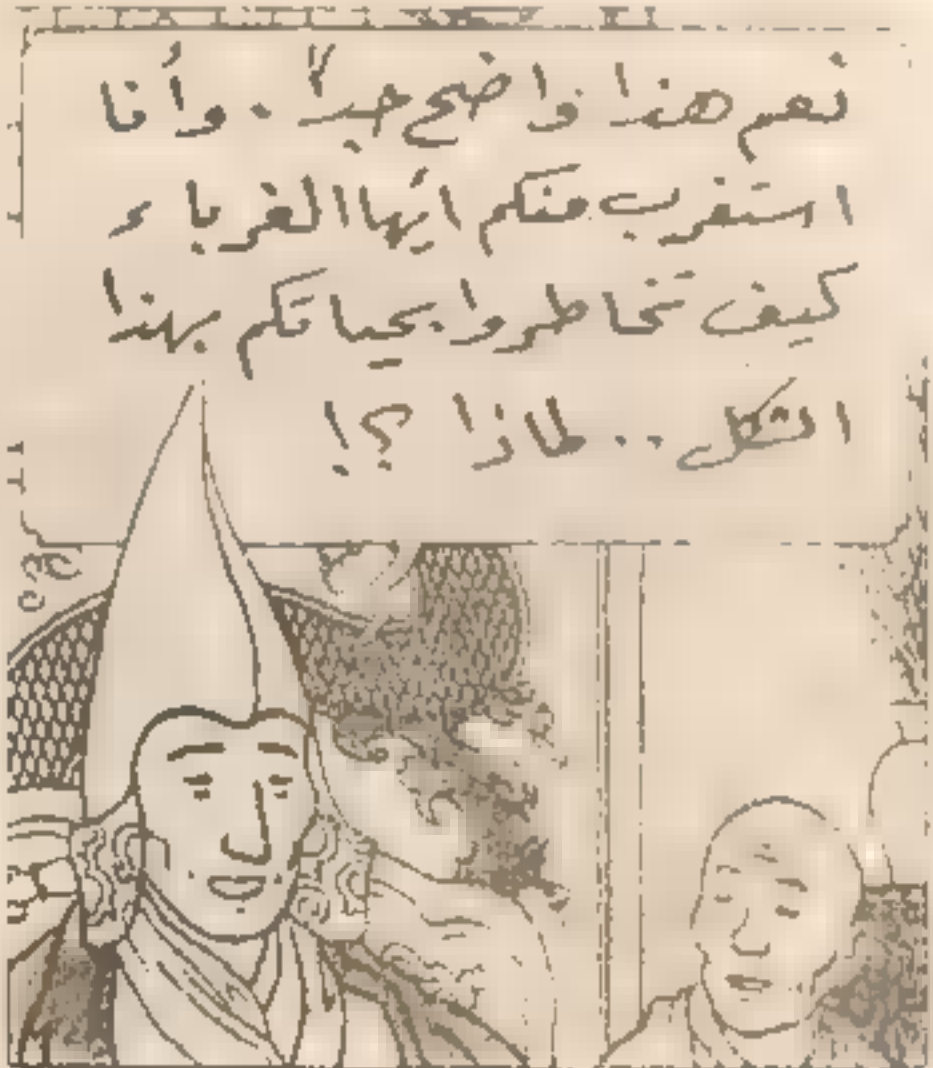 نعم هذا واضح جداً . وأنا
استغرب منكم ايُها الغرباء
كيف تخاطروا بحياتكم بهذا
الشكل .. لماذا ؟!